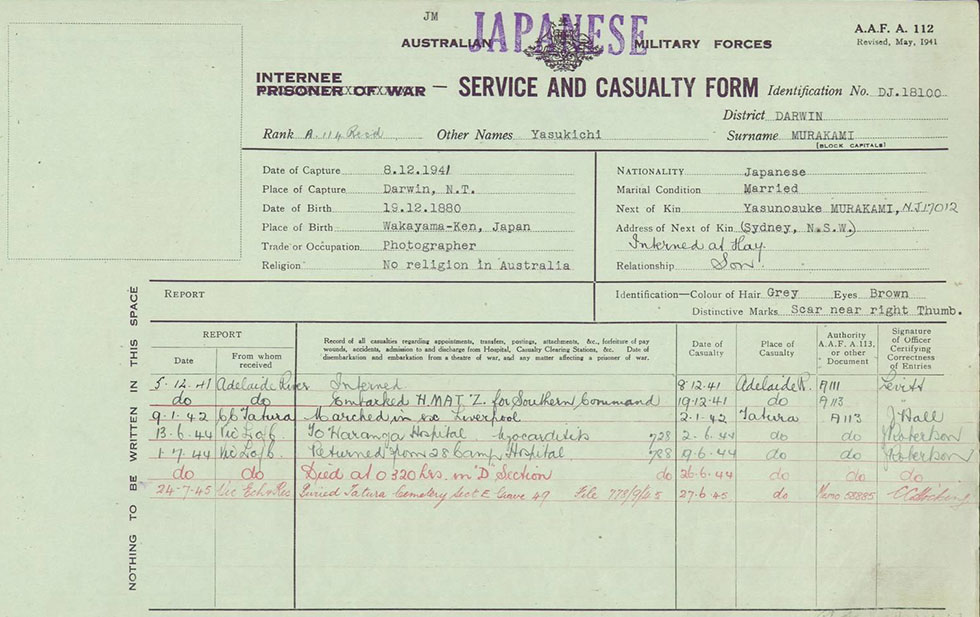 JM
JAPANESE
A.A.F. A. 112
AUSTRALIAN MILITARY FORCES
Revised, May, 1941
INTERNEE
PRISONER OF WAR — SERVICE AND CASUALTY FORM Identification No. DJ.18100
District DARWIN
Rank Other Names Yasukichi Surname MURAKAMI
(BLOCK CAPITALS)
Date of Capture 8.12.1941
Place of Capture Darwin, N.T.
Date of Birth 19.12.1880
Place of Birth Wakayama-Ken, Japan
Trade or Occupation Photographer
Religion No religion in Australia
NATIONALITY Japanese
Marital Condition Married
Next of Kin Yasunosuke MURAKAMI, NJ17012
Address of Next of Kin (Sydney, N.S.W.)
Interned at Hay
Relationship Son.
REPORT
Identification—Colour of Hair Grey Eyes Brown
Distinctive Marks Scar near right Thumb.
NOTHING TO BE WRITTEN IN THIS SPACE
REPORT
Date
From whom received
Record of all casualties regarding appointments, transfers, postings, attachments, &c., forfeiture of pay
wounds, accidents, admission to and discharge from Hospital, Casualty Clearing Stations, &c. Date of
disembarkation and embarkation from a theatre of war, and any matter affecting a prisoner of war.
Date of Casualty
Place of Casualty
Authority A.A.F. A.113. or other Document
Signature of Officer Certifying Correctness of Entries
5.12.41 Adelaide River Interned 8.12.41 Adelaide R. A111
do do Embarked H.M.A.T. "Z" for Southern Command 19.12.41 do A113
9.1.42 Tatura Marched in ex Liverpool 2.1.42 Tatura A113 J Hall
13.6.44 To Waranga Hospital 2.6.44 do do Robertson
1.7.44 Returned from 28 Camp Hospital 19.6.44 do do Robertson
do do Died at 0320 hrs. in "D" Section do 26.6.44 do do do
24-7-45 Buried Tatura Cemetery Sect E Grave 49 File 27.6.45 do Memo 58885